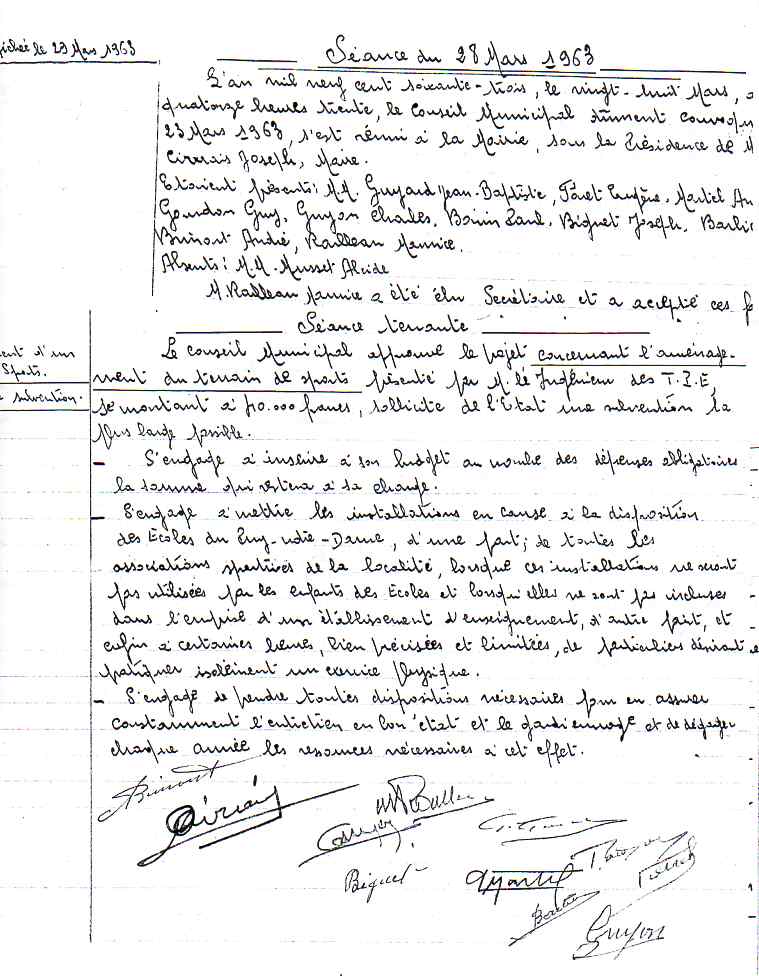 ichée le 29 Mars 1963
Séance du 28 Mars 1963
L'an mil neuf cent soixante-trois, le vingt-huit Mars, a
quatorze heures trente, le Conseil Municipal dûment convoqu
23 Mars 1963, s'est réuni à la Mairie, sous la Présidence de M
Joseph, Maire.
Etaient présents: M.M. Guyard Jean-Baptiste, Eugène, Martel An
Gourdon Guy, Guyon Charles, Paul, Biguet Joseph, Barbi
André, Railleau Maurice.
Absents: M.M. Musset Alcide
M. Railleau Maurice a été élu Secrétaire et a accepté ces f
Séance tenante
ent d'un
Sports.
subvention.
Le Conseil Municipal approuve le projet concernant l'aménage-
ment du terrain de sports présenté par M. le Ingénieur des T.P.E,
se montant à 70.000 francs, sollicite de l'Etat une subvention la
plus large possible.
- S'engage à inscrire à son budget au nombre des dépenses obligatoires
la somme qui restera à sa charge.
- S'engage à mettre les installations en cause à la disposition
des Ecoles du Puy-notre-Dame, d'une part; de toutes les
associations sportives de la localité, lorsque ces installations ne seront
pas utilisées par les enfants des Ecoles et lorsqu'elles ne sont pas incluses
dans l'emprise d'un établissement d'enseignement, d'autre part, et
enfin à certaines heures, bien précisées et limitées, de particuliers désirant
pratiquer isolément un exercice physique.
- S'engage de prendre toutes dispositions nécessaires pour en assurer
constamment l'entretien en bon état et le gardiennage et de dégager
chaque année les ressources nécessaires à cet effet.
Biguet
Martel
Guyon